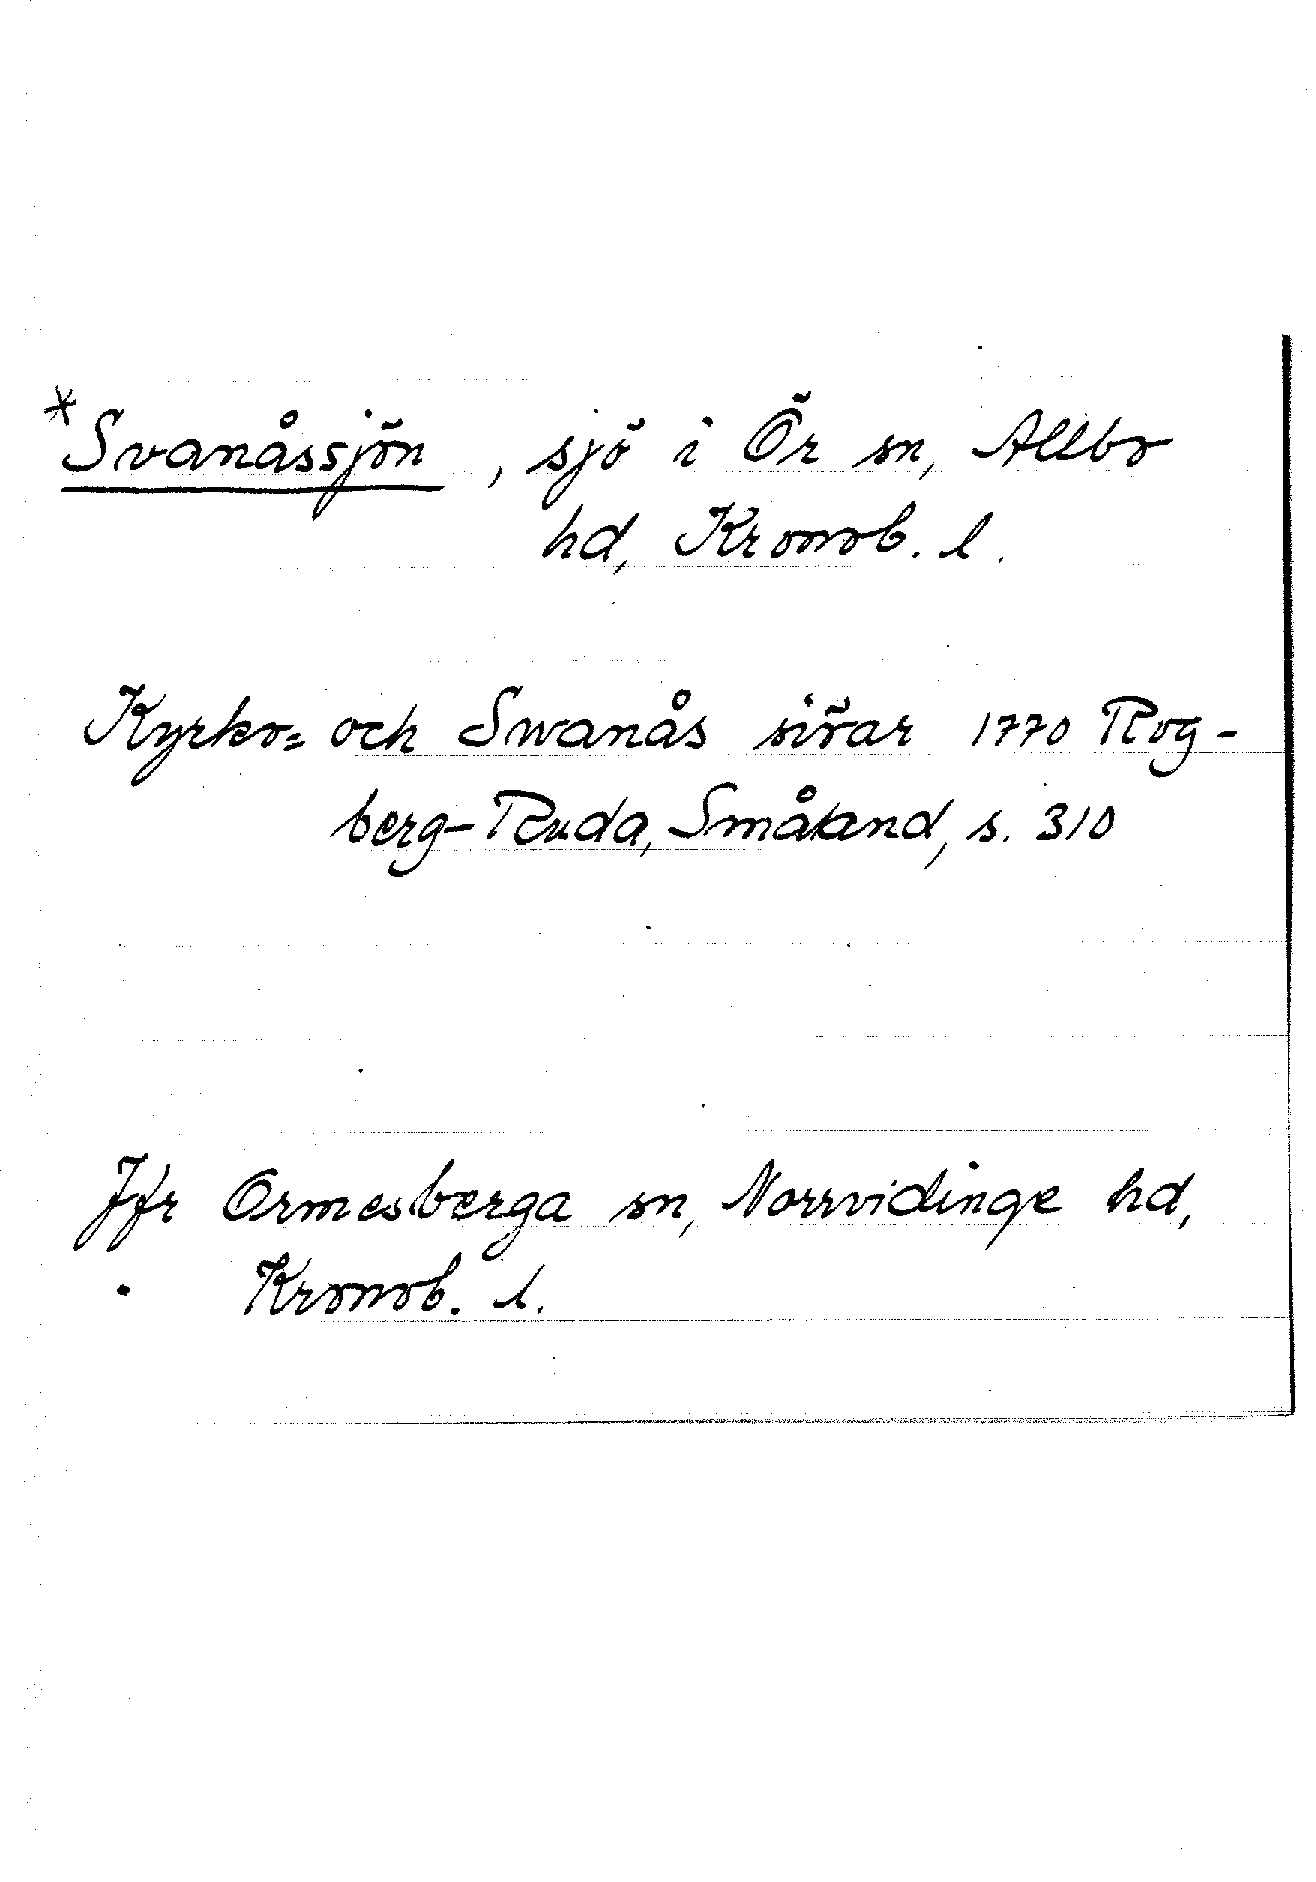 *Svanåssjön, sjö i Ör sn, Allbo
hd, Kronob. l.
Kyrko= och Swanås siöar 1770 Rog-
berg-Ruda, Småland, s. 310
Jfr Ormesberga sn, Norrvidinge hd,
Kronob. l.